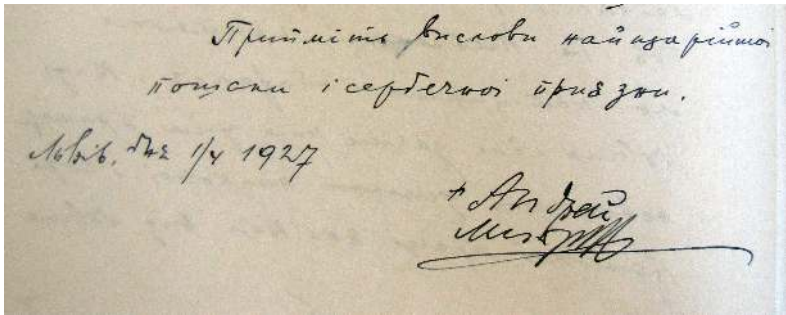 Прийміть вислови найщирійшої
пошани і сердечної приязни.
Львів, дня 1/4 1927
+ Андрей